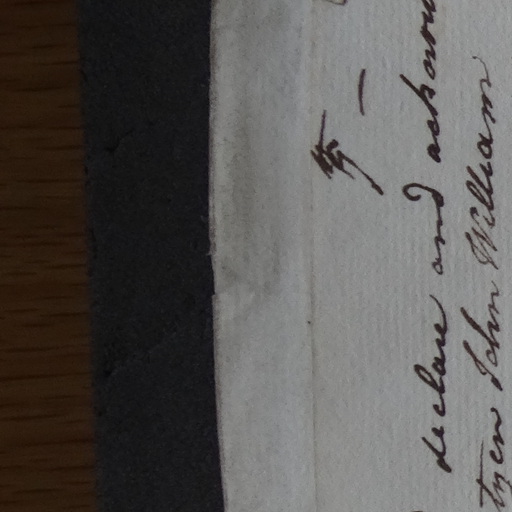 declare and acknow
then John William